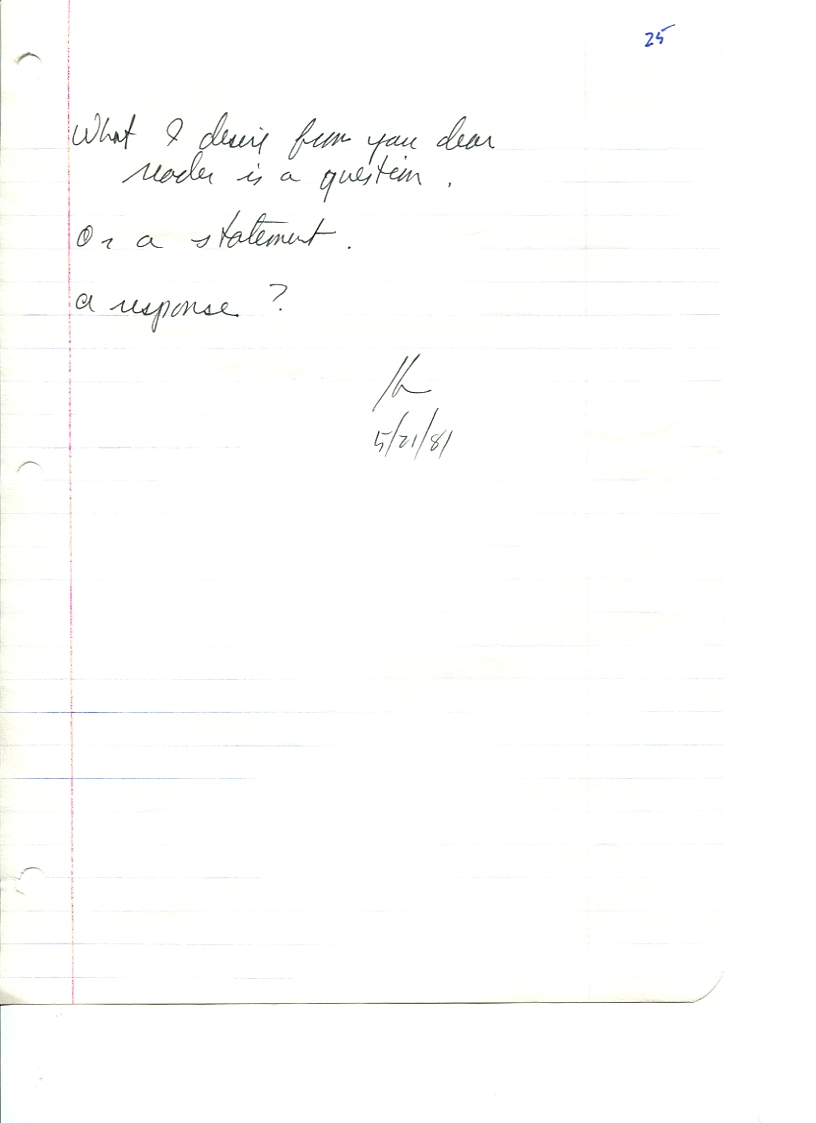 25
What I desire from you dear
reader is a question.
Or a statement.
a response?
5/21/81